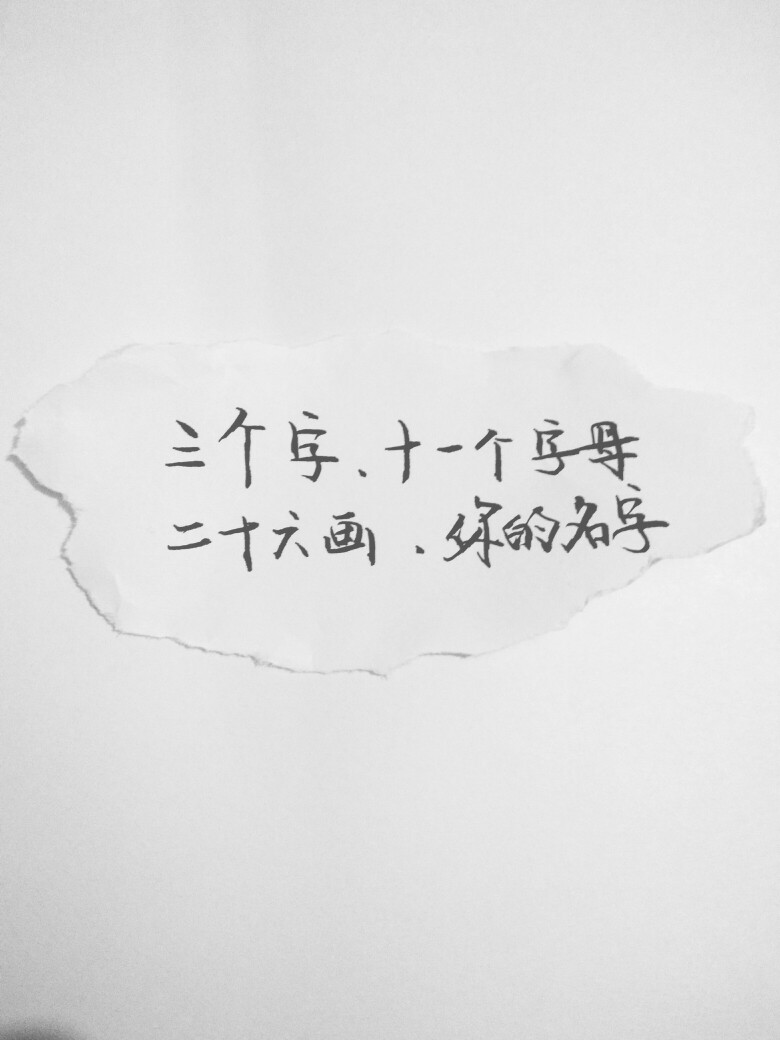 三个字、十一个字母
二十六画、你的名字